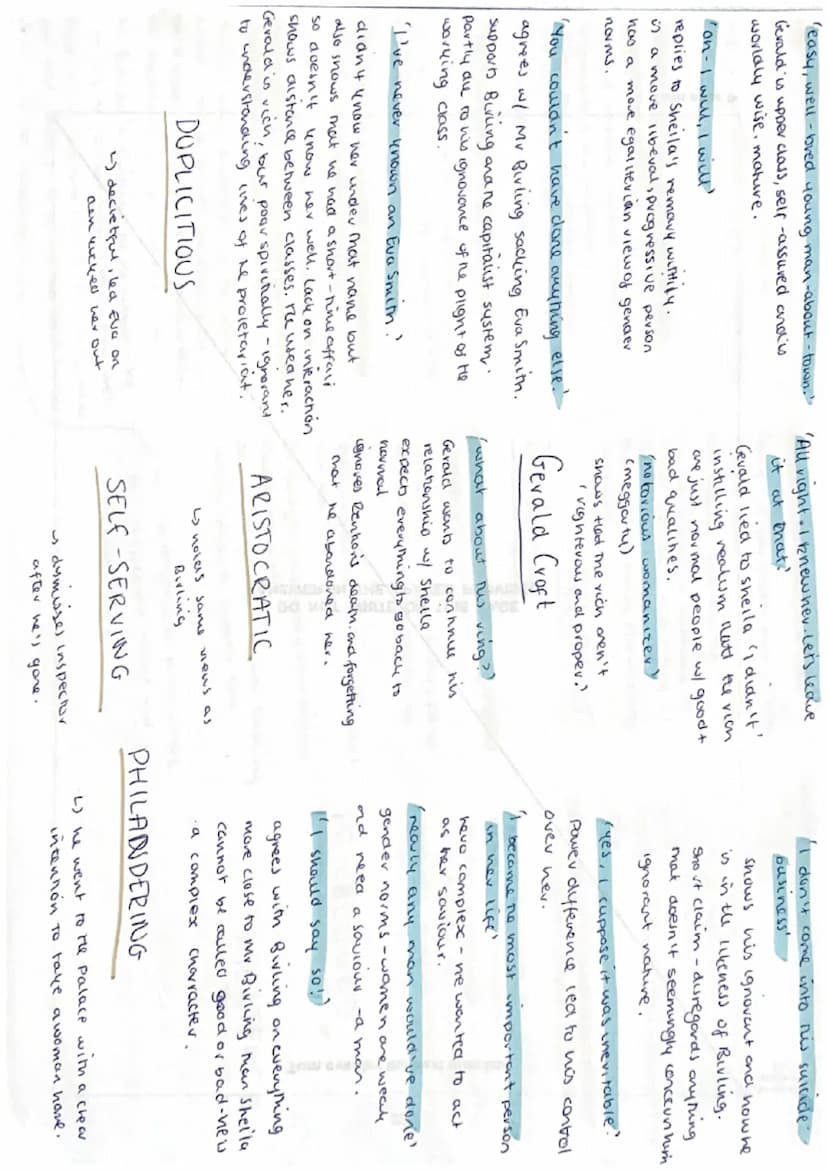 'easy, well-bred young man-about-town.'
Gerald is upper class, self-assured and is
worldly wise, mature.
'oh- I will, I will'
replies to Sheila's remark wittily.
is a more liberal, progressive person
has a more egalitarian view of gender
norms.
'You couldn't have done anything else.'
agrees w/ Mr Birling sacking Eva Smith.
supports Birling and he capitalist system.
partly due to his ignorance of the plight of the
working class.
'I've never known an Eva Smith.'
didn't know her under that name but
also shows that he had a short-time affair
so doesn't know her well. Lack on interaction
shows distance between classes. He used her.
Gerald is rich, but poor spiritually - ignorant
to understanding lives of the proletariat.
DUPLICITIOUS
↳ deceitful, led Eva on
and kicked her out
'All right. I knew her. Let's leave
it at that.'
Gerald lied to Sheila 'I didn't'
instilling realism that the rich
are just normal people w/ good +
bad qualities.
'notorious womanizer'
(meggarty)
shows that the rich aren't
'righteous and proper.'
Gerald Croft
'what about this ring?'
Gerald wants to continue his
relationship w/ Sheila
expects everything to go back to
normal
ignores Renton's death and forgetting
that he abandoned her.
ARISTOCRATIC
↳ holds same views as
Birling
SELF-SERVING
↳ dismisses inspector
after he's gone.
'I don't come into this suicide
business'
shows his ignorant and how he
is in the likeness of Birling.
short claim - disregards anything
that doesn't seemingly concern him
ignorant nature.
'Yes, I suppose it was inevitable.'
Power difference led to his control
over her.
'I became the most important person
in her life'
hero complex - he wanted to act
as her saviour.
'nearly any man would've done'
gender norms - women are weak
and need a saviour - a man.
'I should say so!'
agrees with Birling on everything
more close to Mr Birling than Sheila
cannot be called good or bad - he's
a complex character.
PHILANDERING
↳ he went to the palace with a clear
intention to take a woman home.